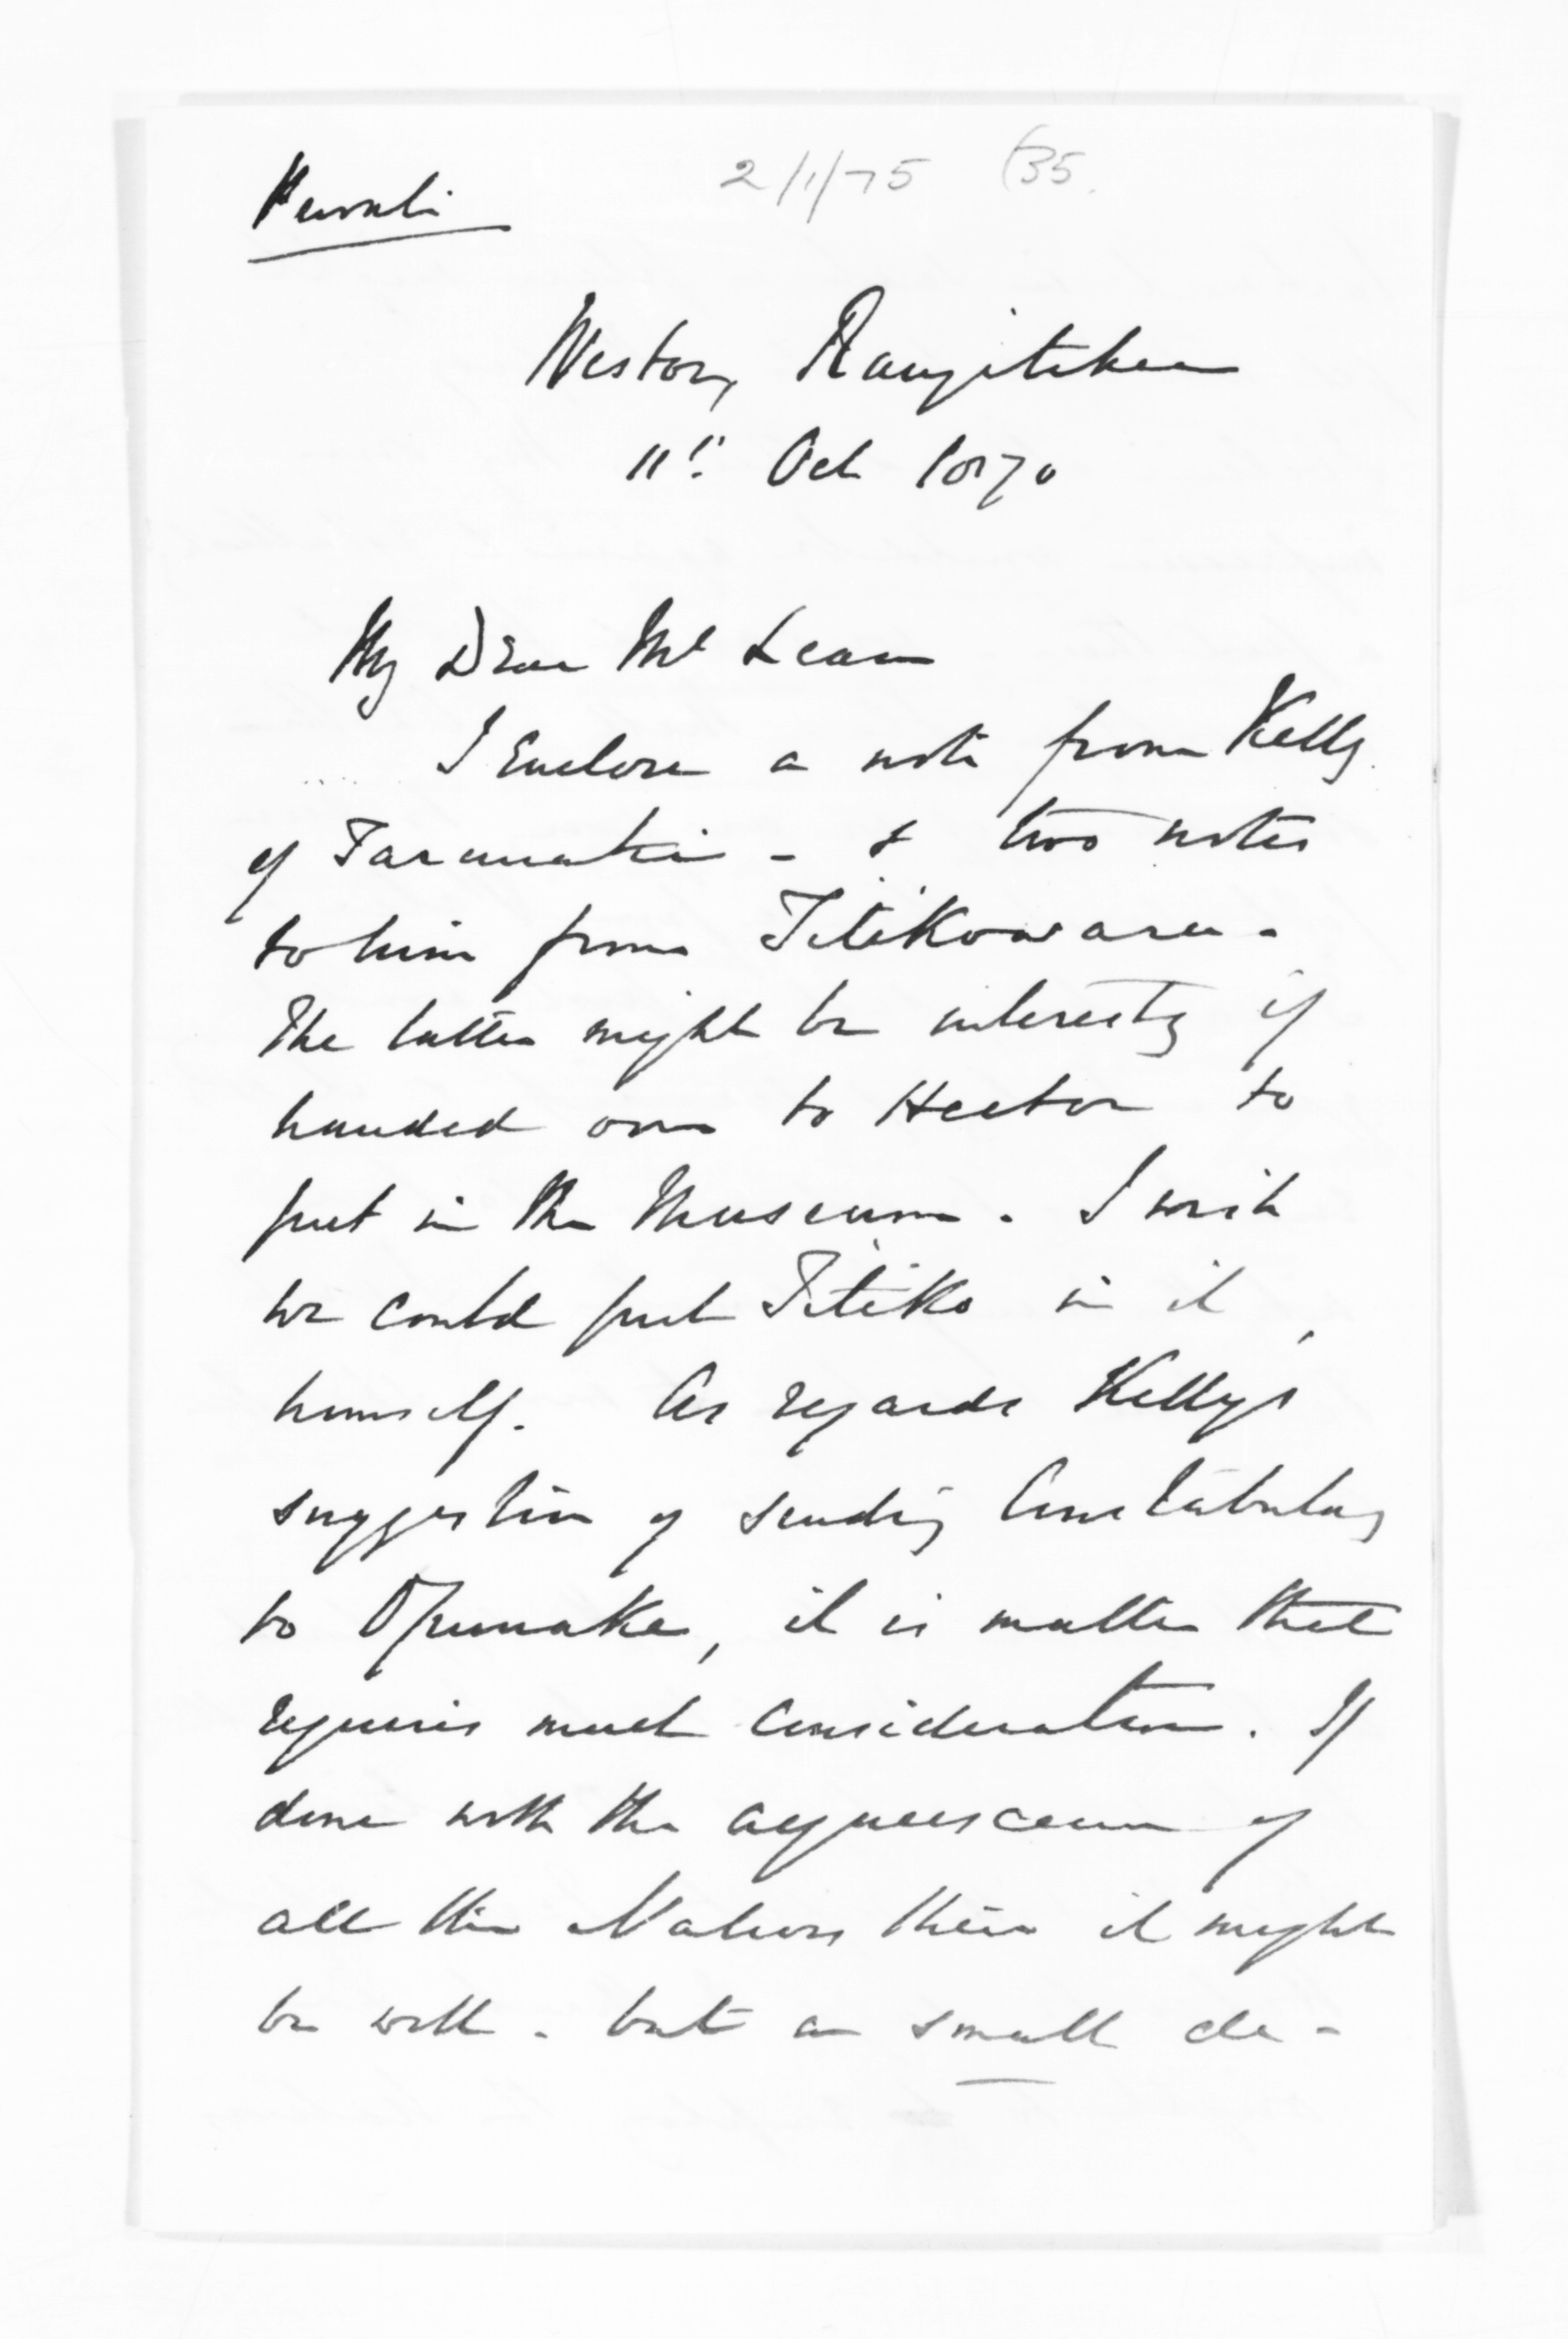 Private
2/1/75 (35.
Westoe, Rangitikei
11th Oct 1870
My Dear McLean
I enclose a note from Kelly
of Taranaki - & two notes
to him from Titikowaru -
The latter might be interestg if
handed over to Hector to
put in the Museum. I wish
we could put Titiko in it,
himself. As regards Kelly's
suggestion of sending Constabulary
to Opunake, it is matter that
requires much consideration. If
done with the acquiescence of
all the Natives there it might
be well - but a small de-